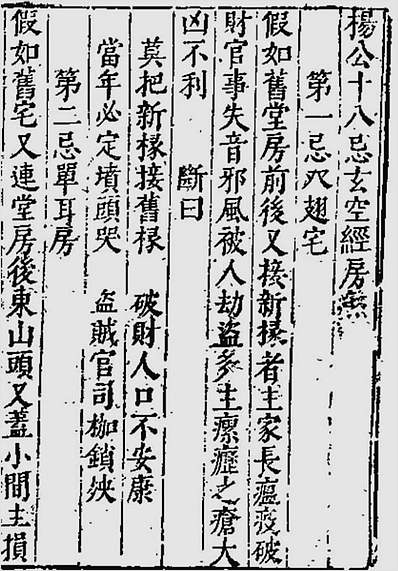 楊公十八忌玄空經房
第一忌翅宅
假如舊堂房前後又接新椽者主家長瘟疫破
財官事失音邪風被人劫盜多主瘰癧之瘡大
凶不利　斷曰
莫把新椽接舊椽　破財人口不安康
當年必定墳頭哭　盜賊官司枷鎖殃
第二忌單耳房
假如舊宅又連堂房後東山頭又蓋小間主損